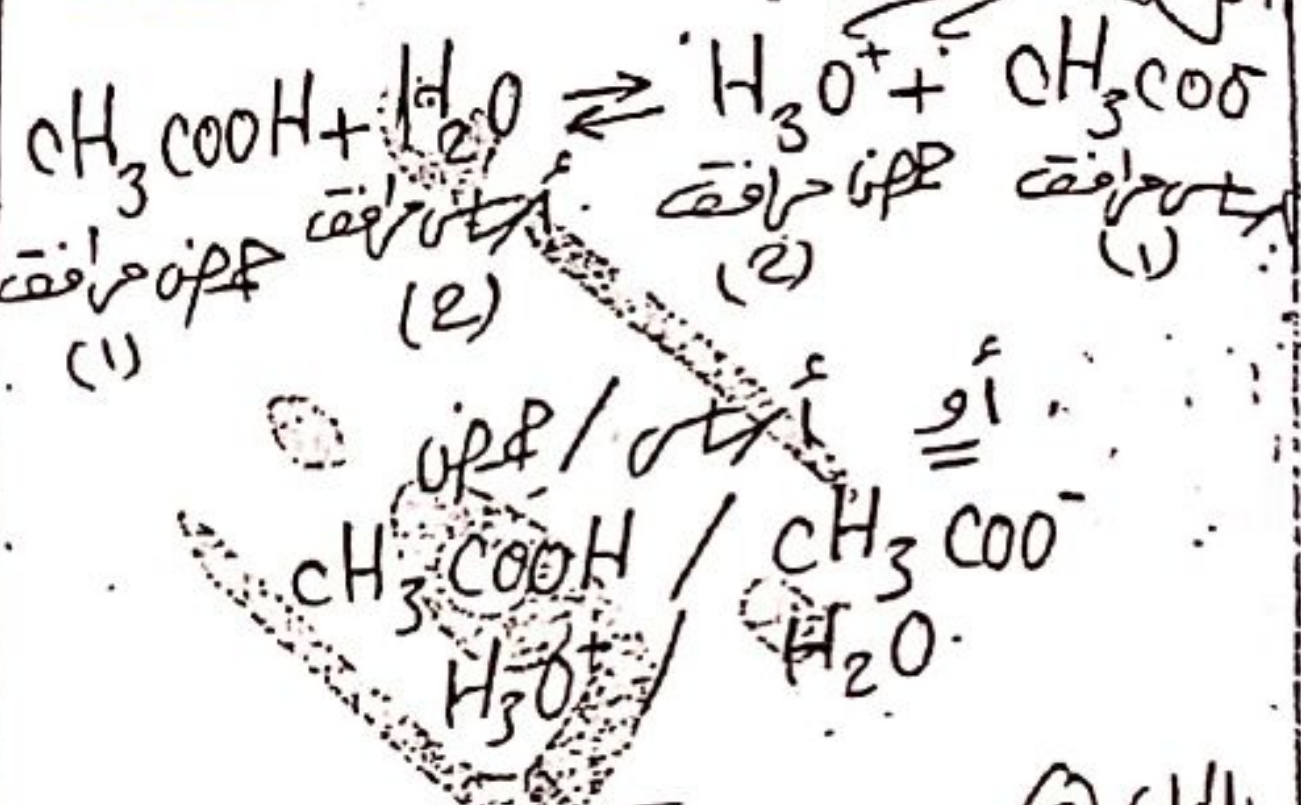 CH₃COOH + H₂O ⇌ H₃O⁺ + CH₃COO⁻
حمض مرافق (1) أساس مرافق (2) حمض مرافق (2) أساس مرافق (1)
أو
أساس / حمض
CH₃COOH / CH₃COO⁻
H₃O⁺ / H₂O